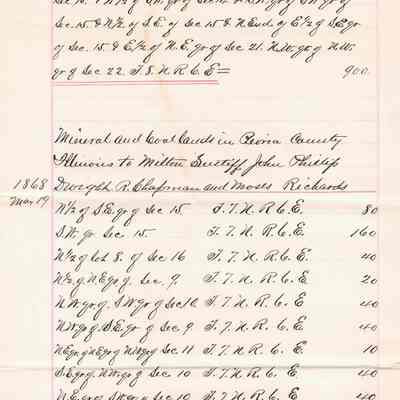 Sec. 15 & N 1/2 of S.E. of Sec 15 & N End. of E 1/2 of S.E. qr
of Sec. 15 & E 1/2 of N.E. qr of Sec. 21. N.W. qr of N.W.
qr of Sec 22. T. 8. N. R. 6. E = 900.
Mineral and Coal Lands in Peoria County
Illinois to Milton John Phillip
1868 Dwight R. Chapman and Moses Richards
Mar 19
N 1/2 of S.E. qr of Sec 15 T. 7. N. R. 6. E. 80
S.W. qr Sec. 15 T. 7. N. R. 6. E. 160
N 1/2 of Lot 8. of Sec 16 T. 7. N. R. 6. E. 40
N 1/2 of N.E. qr of Sec. 9. T. 7. N. R. 6. E 20
N.W. qr of S.W. qr of Sec 16 T. 7. N. R. 6. E 40
N.W. qr of S.E. qr of Sec 9 T. 7. N. R. 6. E. 40
N.E. qr of N.E. qr of N.W. qr of Sec 11 T. 7. N. R. 6. E. 10
S.E. qr of N.W. qr of Sec 10 T. 7. N. R. 6. E. 40
N.E. qr of S.W. qr of Sec 10 T. 7. N. R. 6. E. 40